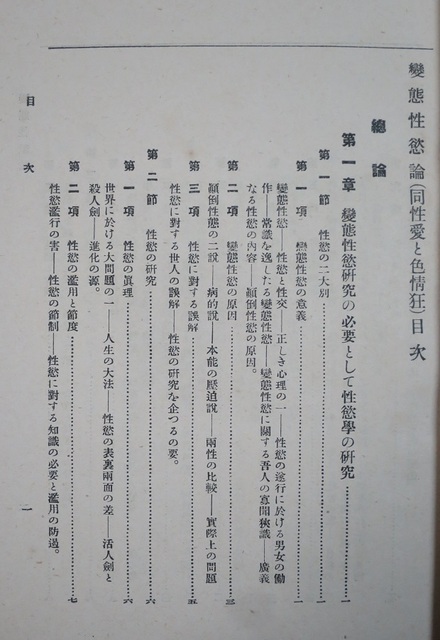 變態性慾論(同性愛と色情狂)目次
總論
第一章 變態性慾硏究の必要として性慾學の硏究………一
第一節 性慾の二大別………一
第一項 變態性慾の意義………一
變態性慾──性慾と性交──正しき心理の一──性慾の遂行に於ける男女の働
作──常識を逸したる變態性慾──變態性慾に關する吾人の寡聞狹識──廣義
なる性慾の內容──顛倒性慾の原因。
第二項 變態性慾の原因………三
顛倒性態の二說──病的說──本能の壓迫說──兩性の比較──實際上の問題
第三項 性慾に對する誤解………五
性慾に對する世人の誤解──性慾の硏究を企つるの要。
第二節 性慾の硏究………六
第一項 性慾の眞理………六
世界に於ける大問題の一──人生の大法──性慾の表裏兩面の差──活人劍と
殺人劍──進化の源。
第二項 性慾の濫用と節度………七
性慾濫行の害──性慾の節制──性慾に對する知識の必要と濫用の防遏。
目次
一